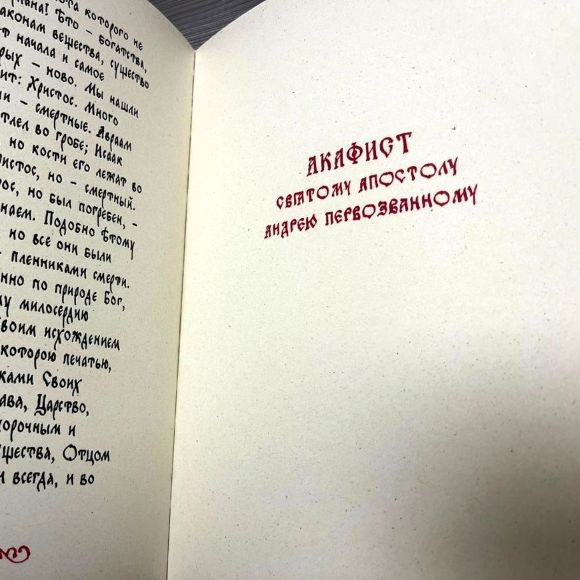 ота которого не
Это – богатства,
законам вещества, существо
т начала и самое
рых – ново. Мы нашли
ит: Христос. Много
и – смертные. Авраам
тлел во гробе; Исаак
но кости его лежат во
истос, но – смертный.
ос, но был погребен, –
наем. Подобно этому
но все они были
пленниками смерти.
нно по природе Бог,
му милосердию
Своим исхождением
которою печатью,
ками Своих
ава, Царство,
корочным и
ущества, Отцом
и всегда, и во
АКАФИСТ
СВЯТОМУ АПОСТОЛУ
АНДРЕЮ ПЕРВОЗВАННОМУ